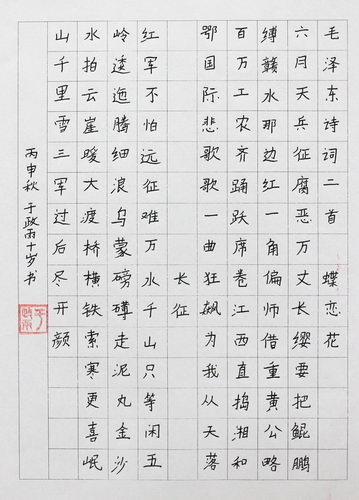 毛泽东诗词二首 蝶恋花
六月天兵征腐恶万丈长缨要把鲲鹏
缚赣水那边红一角偏师借重黄公略
百万工农齐踊跃席卷江西直捣湘和
鄂国际悲歌歌一曲狂飙为我从天落
长征
红军不怕远征难万水千山只等闲五
岭逶迤腾细浪乌蒙磅礴走泥丸金沙
水拍云崖暖大渡桥横铁索寒更喜岷
山千里雪三军过后尽开颜
丙申秋 于政雨十岁书